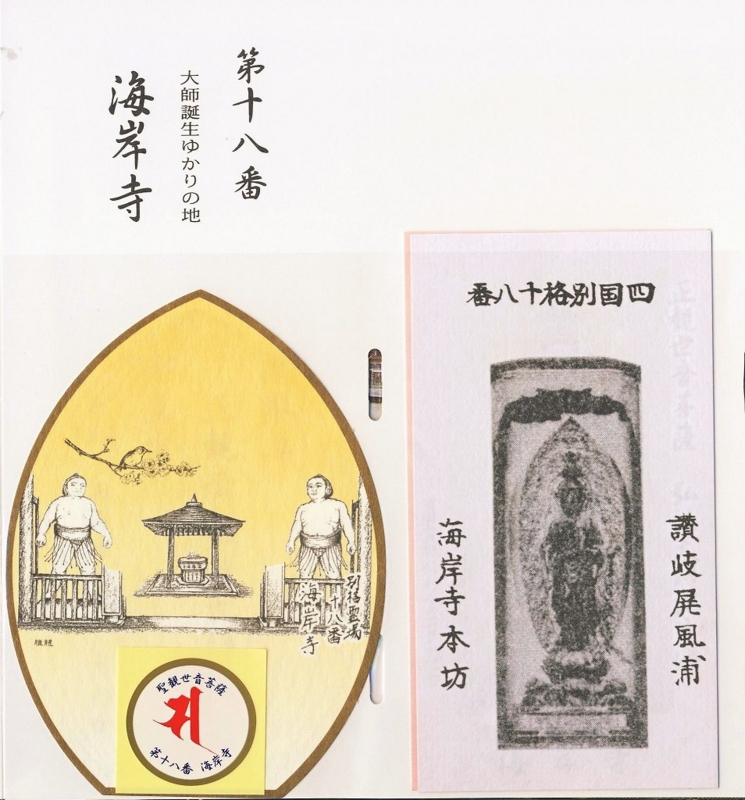 第十八番
大師誕生ゆかりの地
海岸寺
別格霊場
十八番
海岸寺
聖観世音菩薩
第十八番 海岸寺
四国別格十八番
讃岐屏風浦
海岸寺本坊